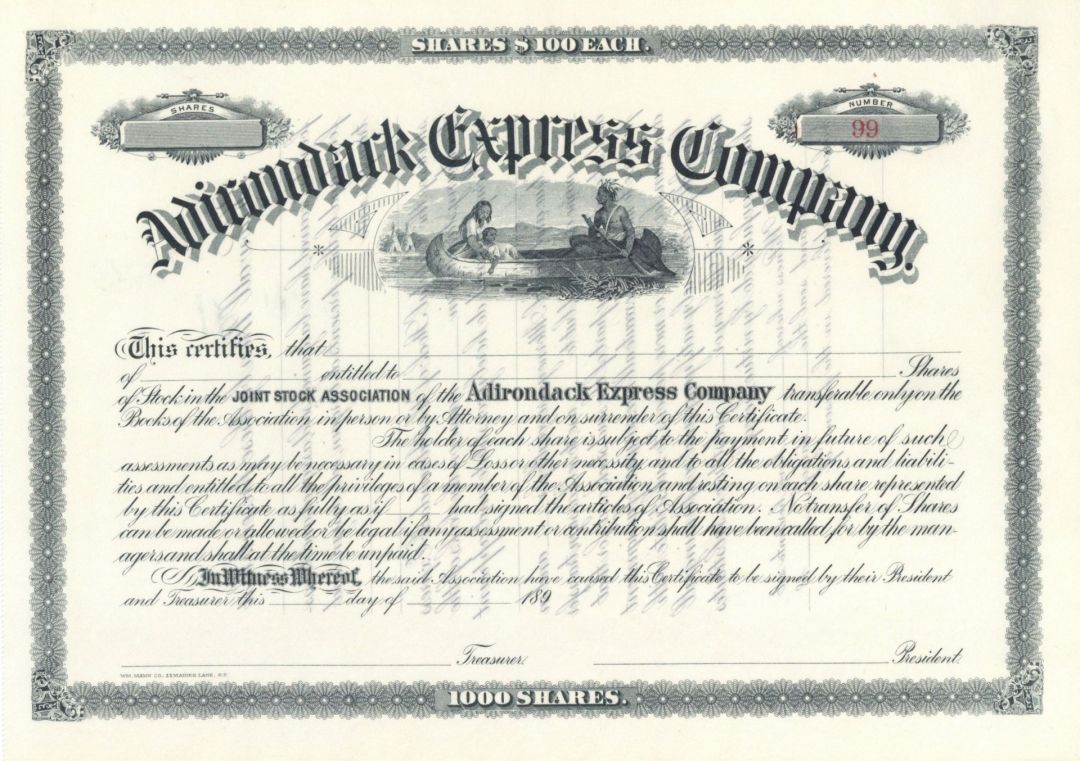 SHARES $100 EACH.
SHARES
NUMBER
99
Adirondack Express Company.
This certifies, that
of entitled to Shares
of Stock in the JOINT STOCK ASSOCIATION of the Adirondack Express Company transferable only on the
Books of the Association in person or by Attorney and on surrender of this Certificate.
The holder of each share is subject to the payment in future of such
assessments as may be necessary in cases of Loss or other necessity, and to all the obligations and liabili-
ties and entitled to all the privileges of a member of the Association, and resting on each share represented
by this Certificate as fully as if had signed the articles of Association. No transfer of Shares
can be made or allowed or be legal if any assessment or contribution shall have been called for by the man-
agers and shall at the time be unpaid.
In Witness Whereof, the said Association have caused this Certificate to be signed by their President
and Treasurer this day of 189
Treasurer. President.
WM. MANN CO., MAIDEN LANE, N.Y.
1000 SHARES.